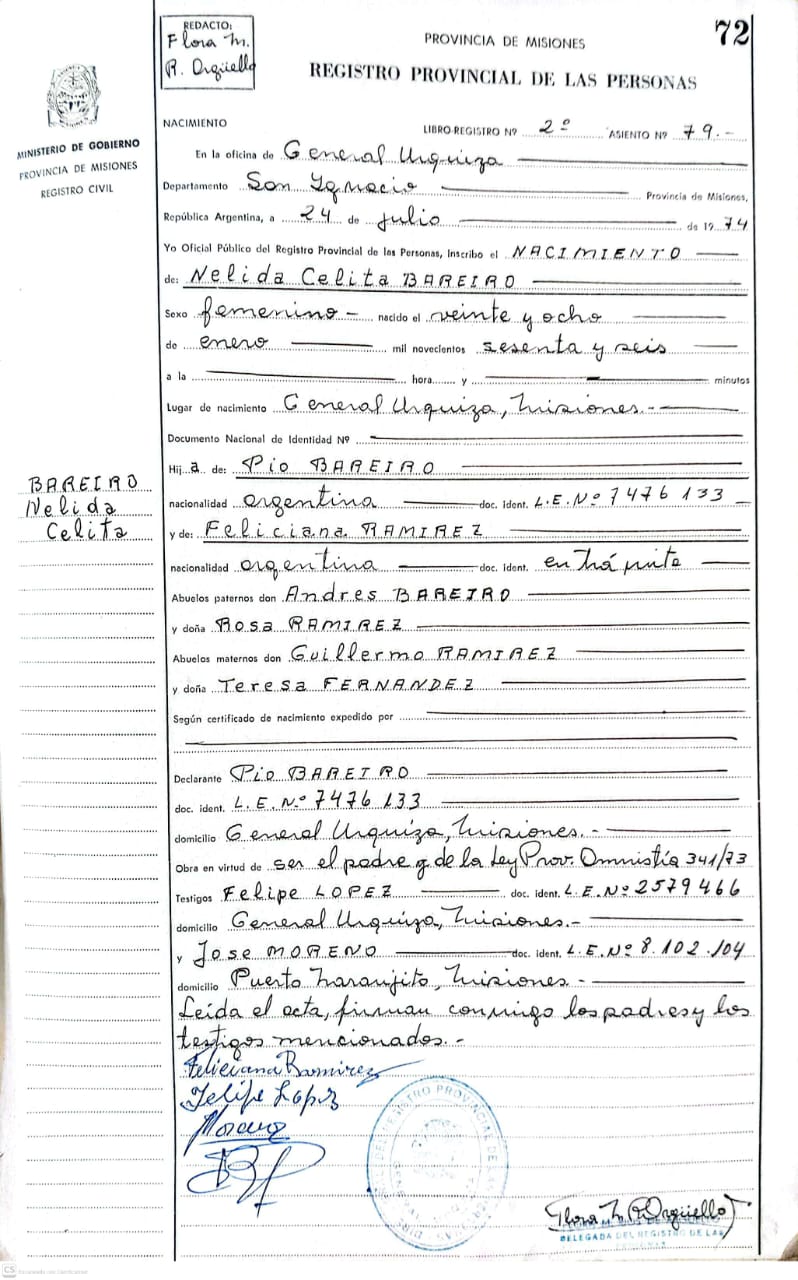 REDACTO:
Flora M.
R. Orgüello
72
PROVINCIA DE MISIONES
REGISTRO PROVINCIAL DE LAS PERSONAS
MINISTERIO DE GOBIERNO
PROVINCIA DE MISIONES
REGISTRO CIVIL
NACIMIENTO
LIBRO REGISTRO Nº 2º ASIENTO Nº 79.-
En la oficina de General Urquiza
Departamento San Ignacio Provincia de Misiones,
República Argentina, a 24 de julio de 1974
Yo Oficial Público del Registro Provincial de las Personas, Inscribo el NACIMIENTO
de: Nelida Celita BAREIRO
Sexo femenino - nacido el veinte y ocho
de enero mil novecientos sesenta y seis
a la hora y minutos
Lugar de nacimiento General Urquiza, Misiones.-
Documento Nacional de Identidad Nº
Hij a de: Pio BAREIRO
BAREIRO
Nelida
Celita
nacionalidad argentina doc. ident. L.E.Nº 7476 133
y de: Feliciana RAMIREZ
nacionalidad argentina doc. ident. en trámite
Abuelos paternos don Andres BAREIRO
y doña Rosa RAMIREZ
Abuelos maternos don Guillermo RAMIREZ
y doña Teresa FERNANDEZ
Según certificado de nacimiento expedido por
Declarante Pio BAREIRO
doc. ident. L.E.Nº 7476 133
domicilio General Urquiza, Misiones.-
Obra en virtud de ser el padre y de la Ley Prov. Omnistía 341/73
Testigos Felipe LOPEZ doc. ident. L.E.Nº 2579466
domicilio General Urquiza, Misiones.-
y Jose MORENO doc. ident. L.E.Nº 8.102.104
domicilio Puerto Naranjito, Misiones.-
Leída el acta, firman conmigo los padres y los
testigos mencionados.-
Feliciana Ramirez
Felipe Lopez
Moreno
Flora M. R. Orgüello
DELEGADA DEL REGISTRO DE LAS
CS